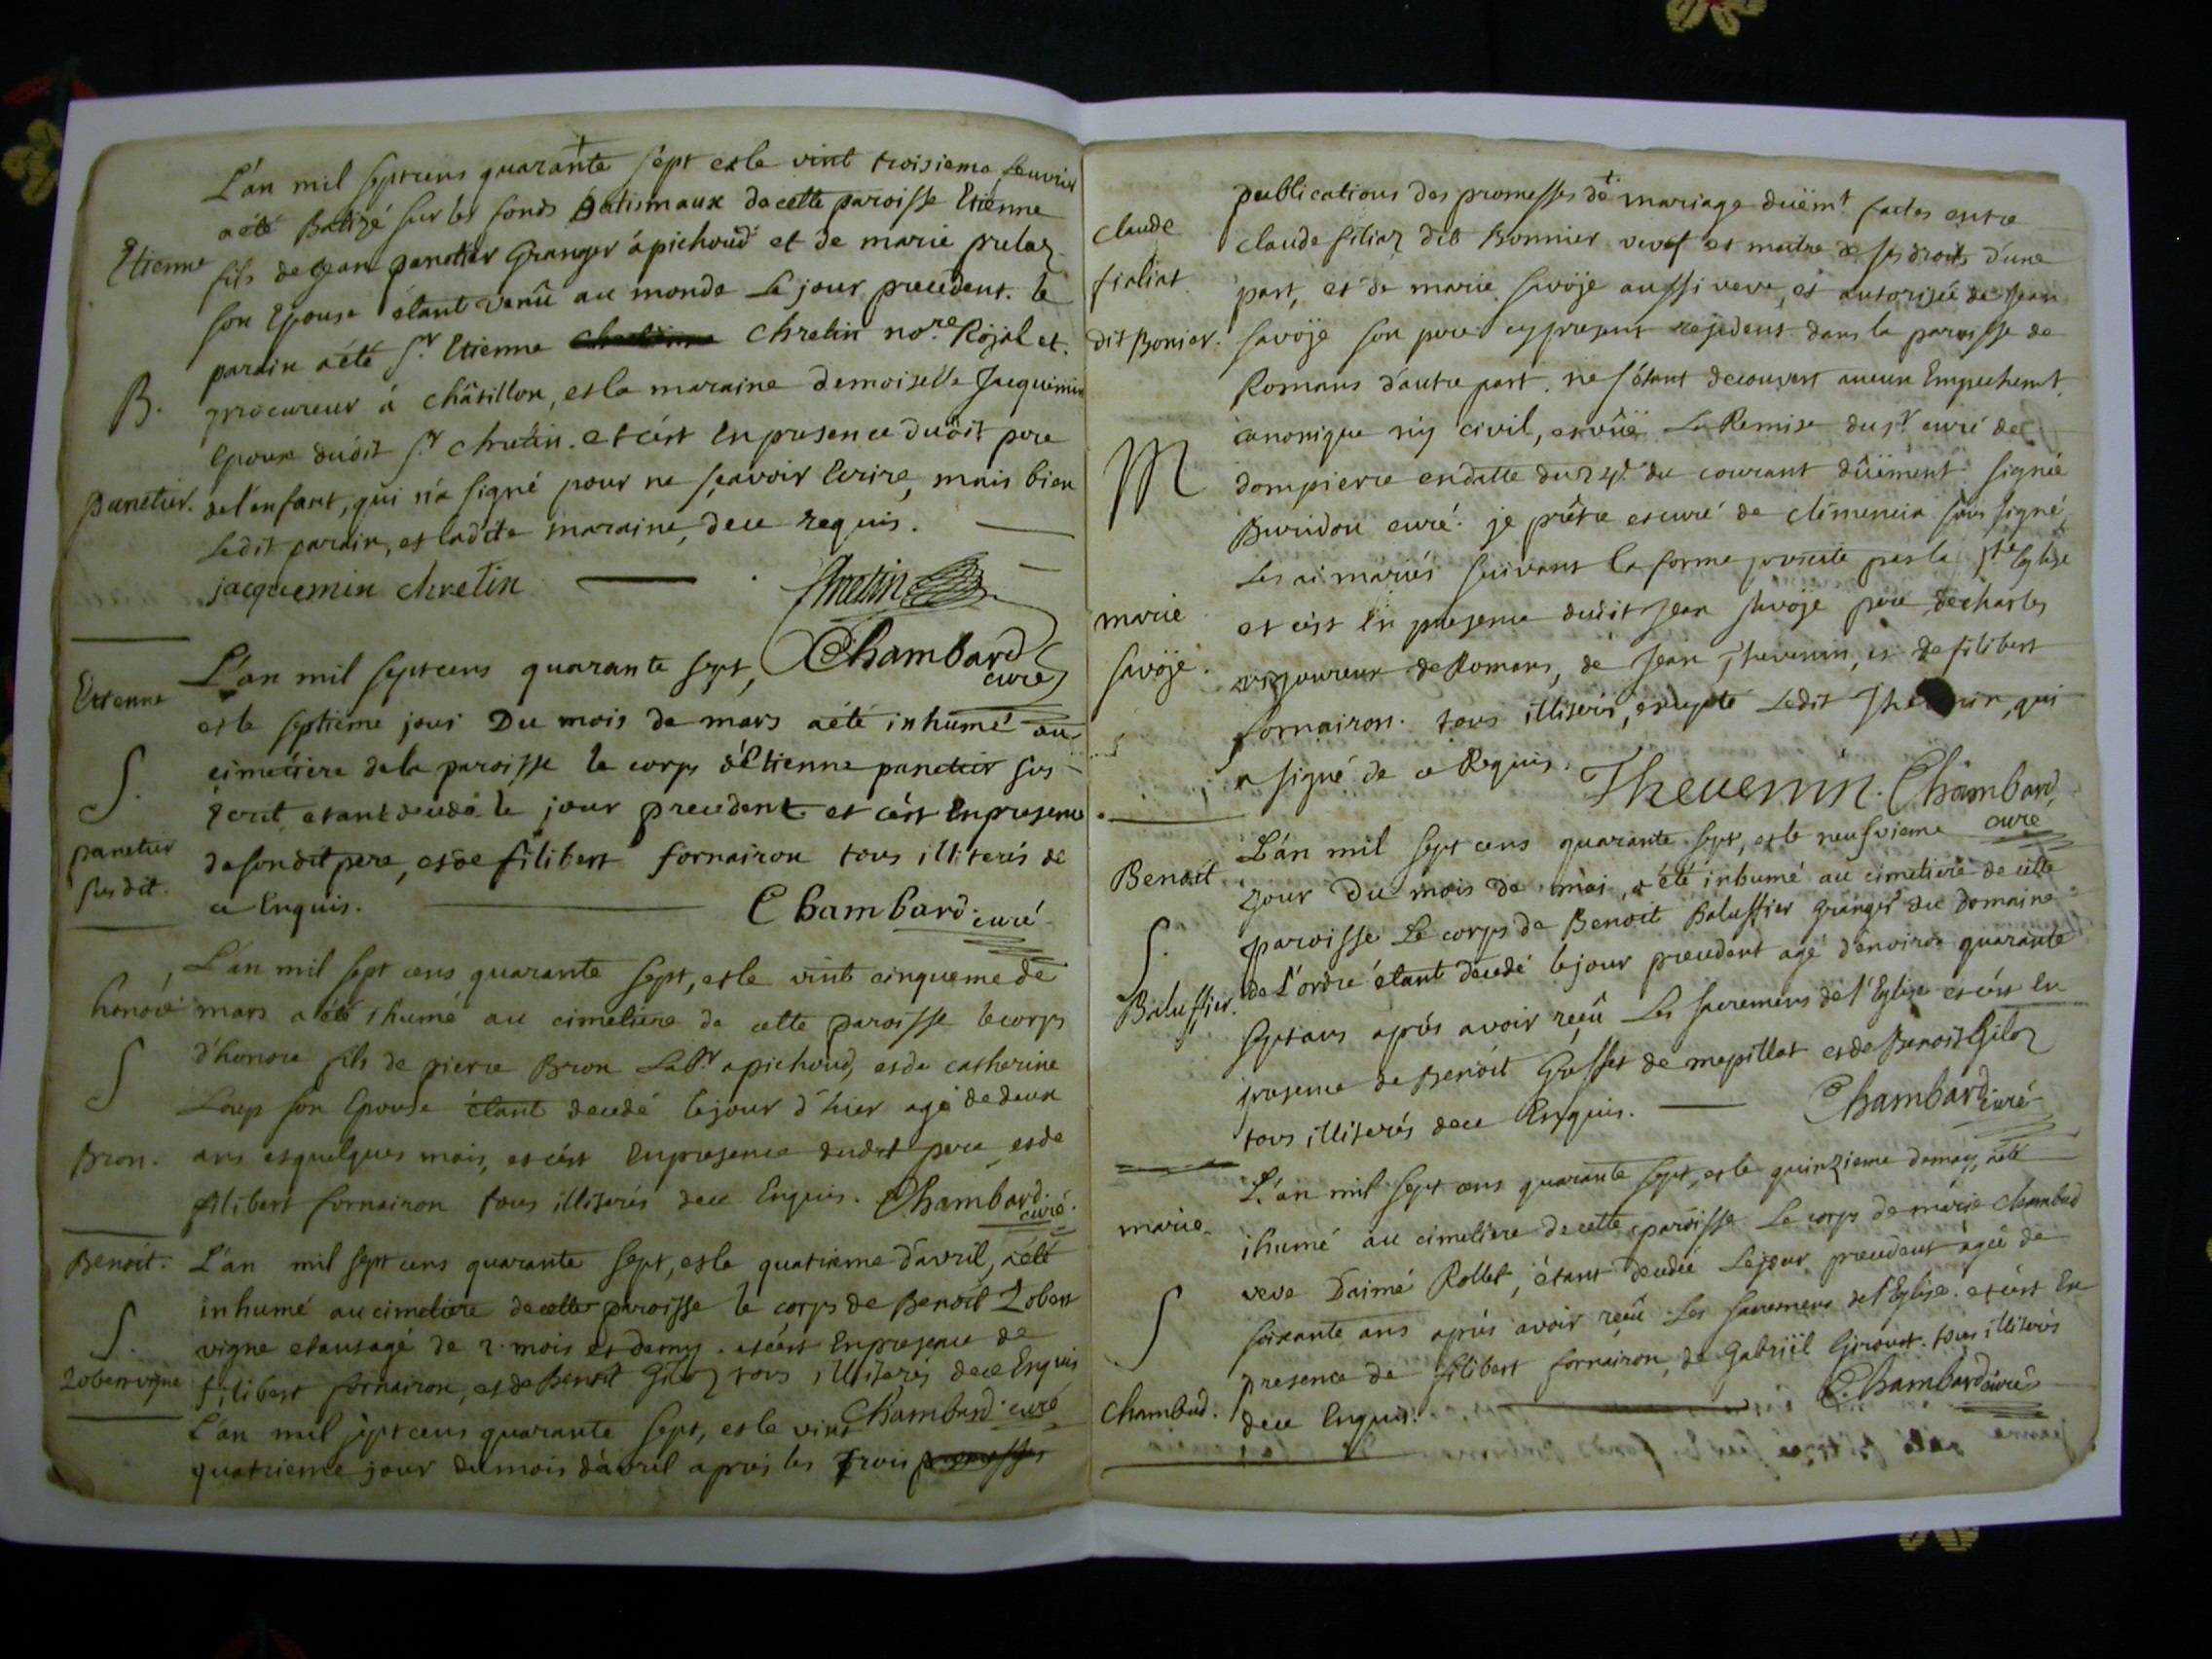 L'an mil septcens quarante sept et le vint troisieme feuvrier
a été Batizé sur les fonds Batismaux de cette paroisse Etienne
Etienne fils de Jean panetier Granger à pichoud et de marie prelaz
son Epouse étant venû au monde Le jour precedent. le
parain a été Sr. Etienne Chretin nore. Rojal et
B. procureur à châtillon, et la maraine demoiselle Jacquemin
Epouse dudit Sr. chretin. et c'est En presence dudit pere
panetier. de l'enfant, qui n'a signé pour ne sçavoir Ecrire, mais bien
Ledit parain, et ladite maraine, de ce requis.
jacquemin chretin Chretin
Chambard curé
Etienne L'an mil septcens quarante sept,
et le septieme jour Du mois de mars a été inhumé au
S. cimetière de la paroisse le corps d'Etienne panetier sus
Ecrit etant decedé le jour precedent et c'est En presence
panetier de son dit pere, et de filibert fornairon tous illiterés de
susdit. ce Enquis. Chambard. curé
L'an mil sept cens quarante sept, et le vint cinqueme de
honoré mars a été ihumé au cimetiere de cette paroisse le corps
S d'honore fils de pierre Bron Labr. a pichoud, et de catherine
Loup son Epouse étant decedé le jour d'hier agé de deux
Bron. ans et quelques mois, et c'est En presence dudit pere et de
filibert fornairon tous illiterés de ce Enquis. Chambard. curé.
Benoit. L'an mil sept cens quarante sept, et le quatrieme d'avril, a été
inhumé au cimetiere de cette paroisse le corps de Benoit Lobert
S. vigne etant agé de 2. mois et demy. et c'est En presence de
Lobert vigne filibert fornairon, et de Benoit Giloz tous illiterés de ce Enquis
Chambard. curé
L'an mil sept cens quarante sept, et le vint
quatrieme jour du mois d'avril après les trois promesses
publications des promesses de mariage duëmt. faites entre
claude claude filiaz dit Bonnier veuf et maitre de ses droits d'une
fialiat part, et de marie savoje aussi veve, et autorisée de Jean
dit Bonier. savoje son pere cy present resident dans la paroisse de
Romans d'autre part. ne s'étant decouvert aucun Empechemt.
canonique nij civil, et vûë La Remise du sr. curé de
M dompierre en datte du 24e. du courant dûëment signée
Buridon curé. je prêtre et curé de clémencia soussigné
Les ai mariés suivant la forme prescrite par la Ste Eglise
marie et c'est En presence dudit Jean savoje pere de charles
savoje. vigoureux de Romans, de Jean Thevenin, et de filibert
fornairon. tous illiterés, excepté Ledit Thevenin, qui
a signé de ce Requis. Thevenin. Chambard, curé
L'an mil sept cens quarante sept, et le neufvieme
Benoit jour Du mois de mai, a été inhumé au cimetiere de cette
S. paroisse Le corps de Benoit Baluffier Granger du Domaine
Baluffier. de L'ordre étant decedé le jour precedent agé d'environ quarante
sept ans après avoir reçû Les sacremens de l'Eglise et c'est En
presence de Benoit Gosset de mepillat et de Benoit Giloz
tous illiterés de ce Enquis. Chambard. curé
L'an mil sept cens quarante sept, et le quinzieme de may, a été
marie ihumé au cimetiere de cette paroisse Le corps de marie chambud
veve D'aimé Rollet, étant decedée Le jour precedent agée de
S soixante ans après avoir reçû Les sacremens de l'Eglise. et c'est En
presence de filibert fornairon, de Gabriël Giroust. tous illiterés
chambud. de ce Enquis. Chambard curé